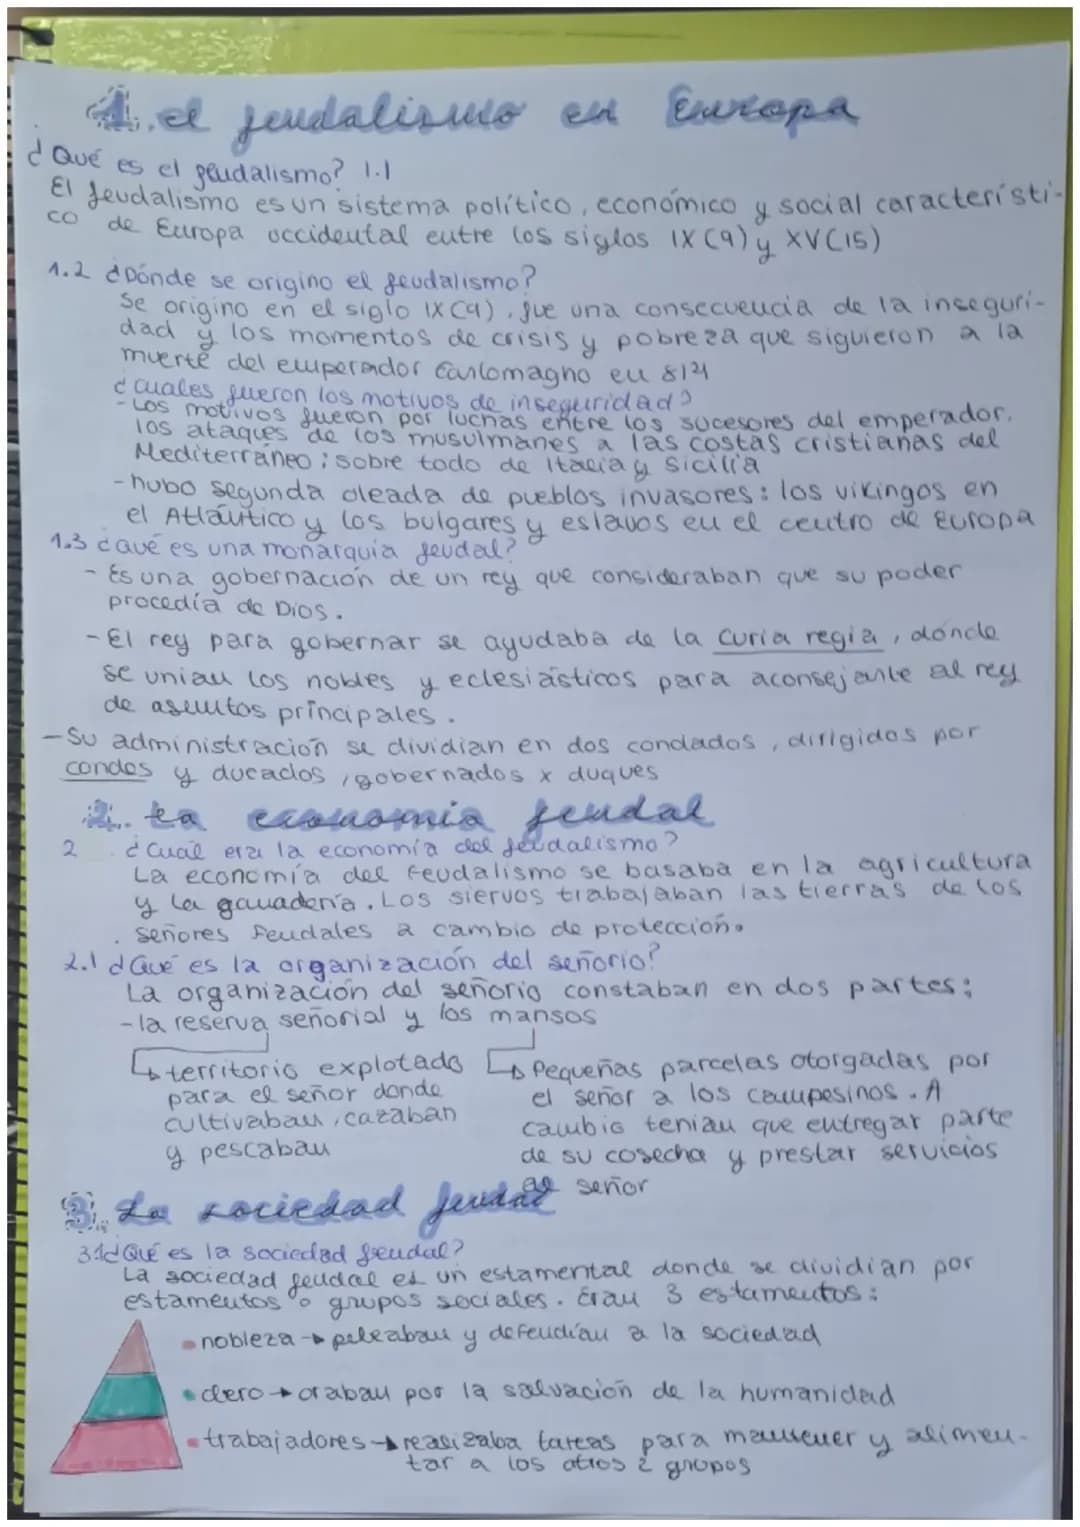 1. el feudalismo en Europa
¿Qué es el feudalismo? 1.1
El feudalismo es un sistema político, económico y social característi-
co de Europa occidental entre los siglos IX (9) y XV (15)
1.2 ¿Dónde se origino el feudalismo?
Se origino en el siglo IX (9). fue una consecuencia de la inseguri-
dad y los momentos de crisis y pobreza que siguieron a la
muerte del emperador Carlomagno en 814
¿cuales fueron los motivos de inseguridad?
-Los motivos fueron por luchas entre los sucesores del emperador.
los ataques de los musulmanes a las costas cristianas del
Mediterráneo; sobre todo de Italia y Sicilia
-hubo segunda oleada de pueblos invasores: los vikingos en
el Atlántico y los bulgares y eslavos en el centro de Europa
1.3 ¿Qué es una monarquia feudal?
- Es una gobernación de un rey que consideraban que su poder
procedía de Dios.
-El rey para gobernar se ayudaba de la curia regia, dónde
se unian los nobles y eclesiásticos para aconsejarle al rey
de asuntos principales.
-Su administración se dividian en dos condados, dirigidos por
condes y ducados, gobernados x duques
2. La economia feudal
2 ¿Cuál era la economía del feudalismo?
La economía del Feudalismo se basaba en la agricultura
y la ganadería. Los siervos trabajaban las tierras de los
señores Feudales a cambio de protección.
2.1 ¿Qué es la organización del señorio?
La organización del señorio constaban en dos partes:
-la reserva señorial y los mansos
territorio explotado para el señor donde cultivaban, cazaban y pescaban
Pequeñas parcelas otorgadas por
el señor a los campesinos. A
cambio tenian que entregar parte
de su cosecha y prestar servicios
al señor
3. La sociedad feudal
3.1 ¿Qué es la sociedad feudal?
La sociedad feudal es un estamental donde se dividian por
estamentos o grupos sociales. Eran 3 estamentos:
nobleza → peleaban y defendían a la sociedad
clero → oraban por la salvación de la humanidad
trabajadores → realizaba tareas para mantener y alimen-
tar a los otros 2 grupos